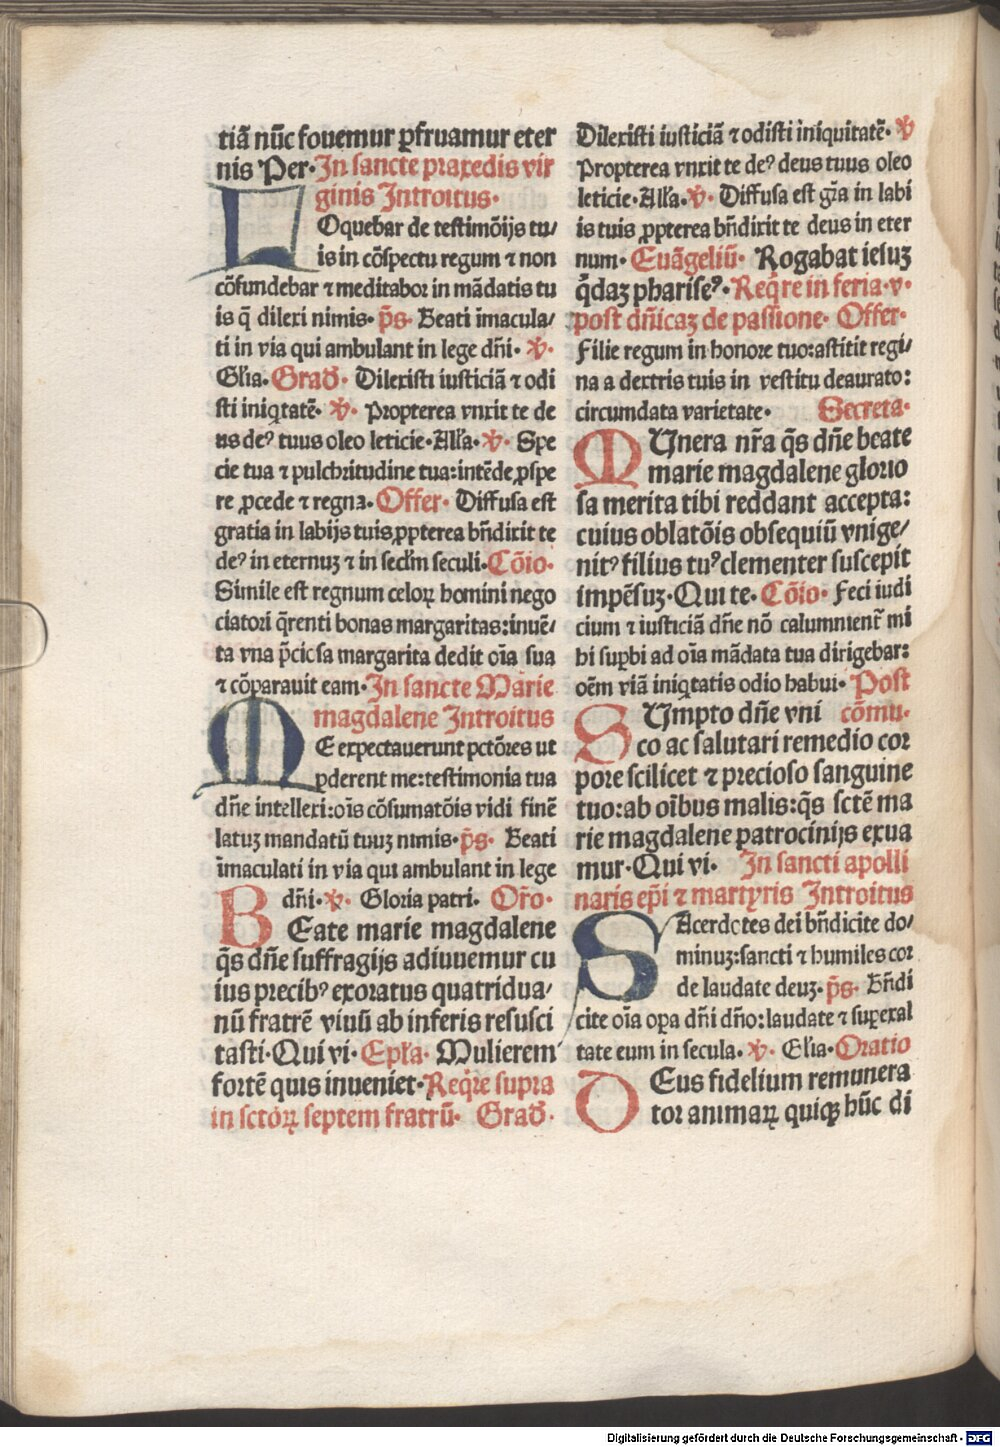 tiã nũc fovemur ꝑfruamur eter
nis Per· In sancte praxedis vir
ginis Introitus·
LOquebar de testimõijs tu/
is in cõspectu regum ⁊ non
cõfundebar ⁊ meditabor in mãdatis tu
is q̃ dilexi nimis· p̃s· Beati ĩmacula/
ti in via qui ambulant in lege dñi· ℣·
Gl'ia· Grad̃· Dilexisti iusticiã ⁊ odi
sti iniq̃tatẽ· ℣· Propterea vnxit te de
us deꝰ tuus oleo leticie· All'a· ℣· Spe
cie tua ⁊ pulchritudine tua: intẽde ꝓspe
re ꝓcede ⁊ regna· Offer· Diffusa est
gratia in labijs tuis ꝓpterea bñdixit te
deꝰ in eternuꝫ ⁊ in secl'm seculi· Cõio·
Simile est regnum celoꝝ homini nego
ciatori q̃renti bonas margaritas: inuẽ/
ta vna p̃ciosa margarita dedit oĩa sua
⁊ cõparauit eam· In sancte Marie
magdalene Introitus
ME expectauerunt pctõres ut
ꝑderent me: testimonia tua
dñe intellexi: oĩs cõsumatõis vidi finẽ
latuꝫ mandatũ tuuꝫ nimis· p̃s· Beati
ĩmaculati in via qui ambulant in lege
dñi· ℣· Gloria patri· Or̃o·
BEate marie magdalene
q̃s dñe suffragijs adiuuemur cu
ius precibꝰ exoratus quatridua/
nũ fratrẽ viuũ ab inferis resusci
tasti· Qui vi· Epl'a· Mulierem
fortẽ quis inueniet· Req̃re supra
in sctõꝝ septem fratrũ· Grad̃·
Dilexisti iusticiã ⁊ odisti iniquitatẽ· ℣
Propterea vnxit te deꝰ deus tuus oleo
leticie· All'a· ℣· Diffusa est gr̃a in labi
is tuis ꝓpterea bñdixit te deus in eter
num· Euãgeliũ· Rogabat iesuꝫ
q̃daꝫ phariseꝰ· Req̃re in feria·v·
post dñicaꝫ de passione· Offer·
Filie regum in honore tuo: astitit regi/
na a dextris tuis in vestitu deaurato:
circumdata varietate· Secreta·
MUnera nr̃a q̃s dñe beate
marie magdalene glorio
sa merita tibi reddant accepta:
cuius oblatõis obsequiũ vnige/
nitꝰ filius tuꝰ clementer suscepit
impẽsuꝫ· Qui te· Cõio· Feci iudi
cium ⁊ iusticiã dñe nõ calumnient̃ mi
hi suꝑbi ad oĩa mãdata tua dirigebar:
oẽm viã iniq̃tatis odio habui· Post
SUmpto dñe vni cõmu·
co ac salutari remedio cor
pore scilicet ⁊ precioso sanguine
tuo: ab oĩbus malis: q̃s sctẽ ma
rie magdalene patrocinijs exua
mur· Qui vi· In sancti apolli
naris ep̃i ⁊ martyris Introitus
SAcerdotes dei bñdicite do/
minuꝫ: sancti ⁊ humiles cor
de laudate deuꝫ· p̃s· Bñdi
cite oĩa oꝑa dñi dño: laudate ⁊ suꝑexal
tate eum in secula· ℣· Gl'ia· Oratio
DEus fidelium remunera
tor animaꝝ quiqꝫ hũc di
Digitalisierung gefördert durch die Deutsche Forschungsgemeinschaft - DFG